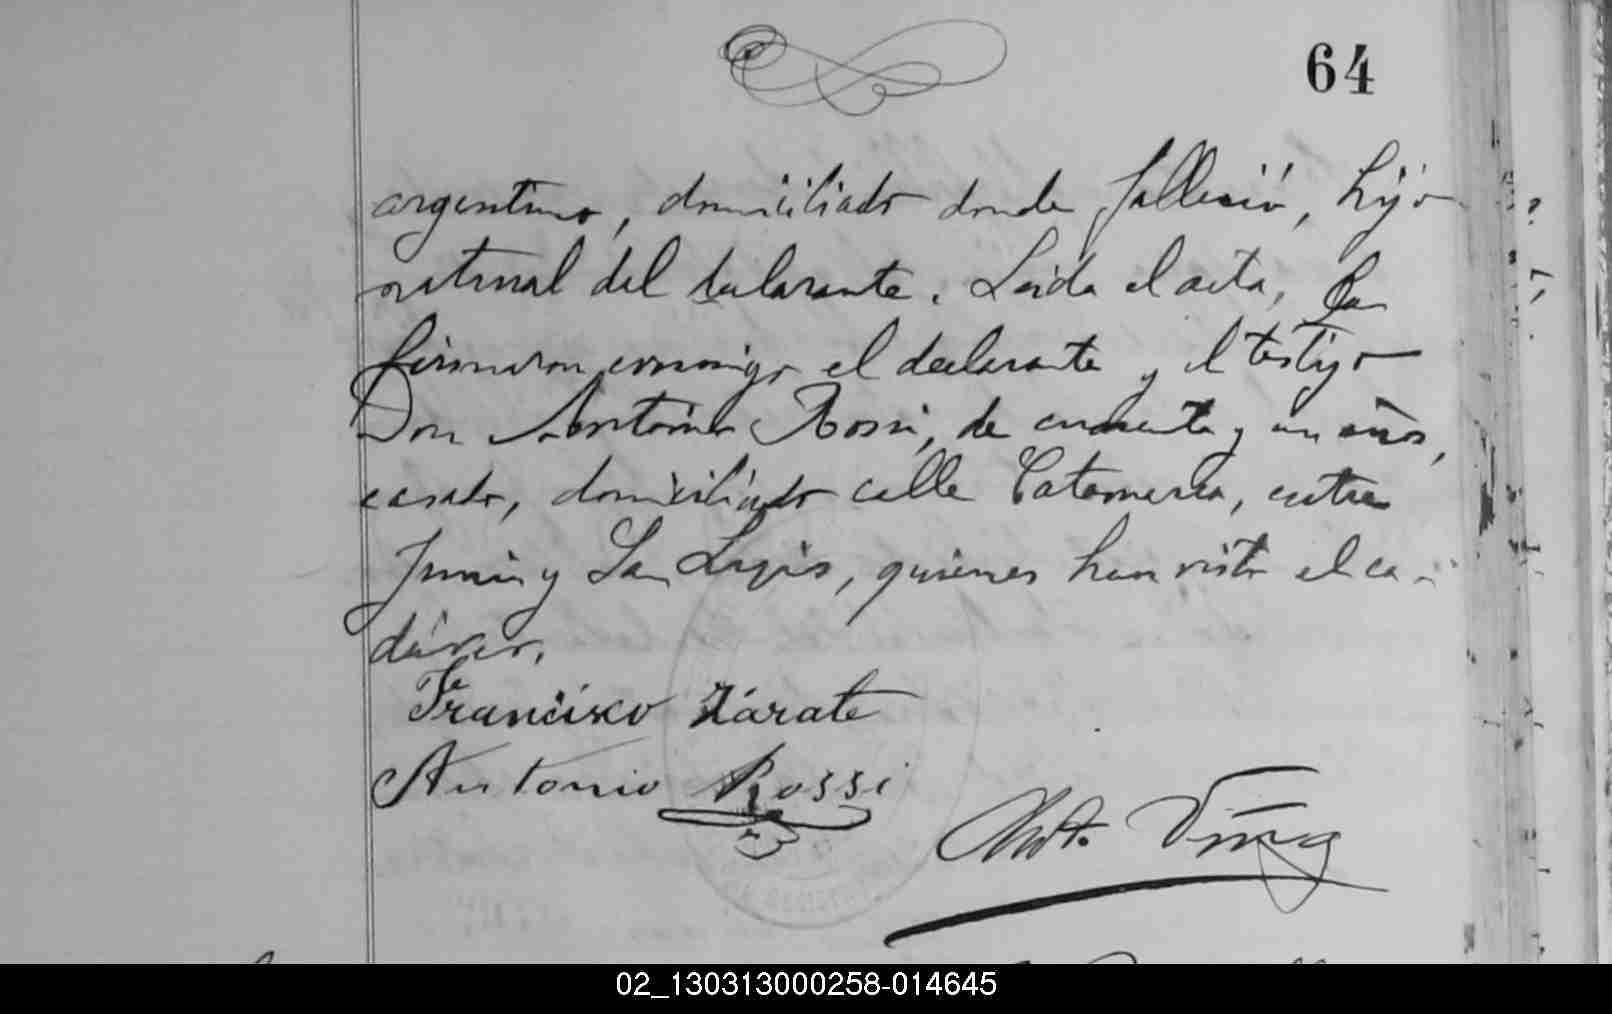 64
argentino, domiciliado donde falleció, hijo
natural del declarante. Leida el acta, la
firmaron conmigo el declarante y el testigo
Don Antonio Rossi, de cuarenta y un años,
casado, domiciliado calle Catamarca, entre
Junin y San Luis, quienes han visto el ca-
dáver.
Francisco Zárate
Antonio Rossi
02_130313000258-014645